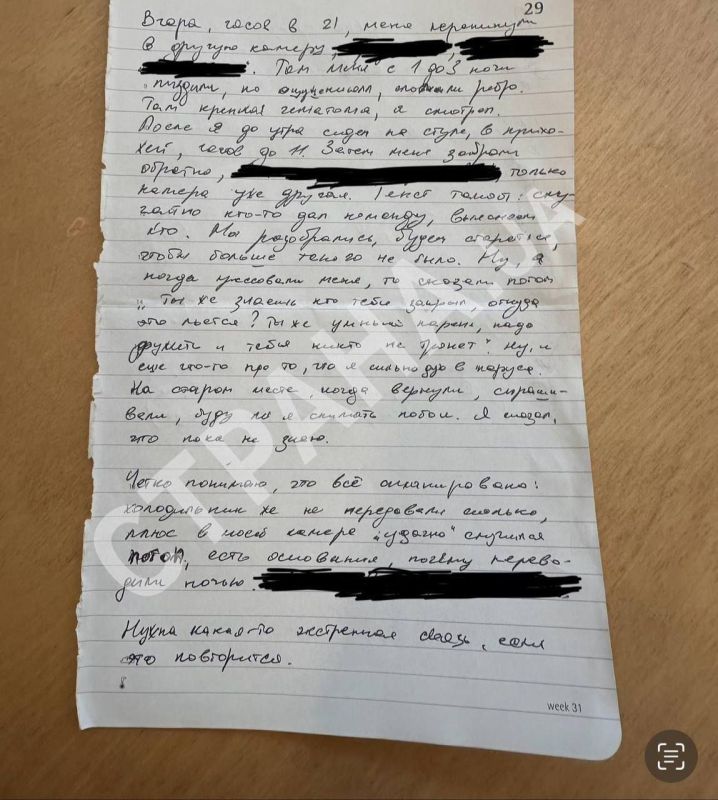 29
Вчера, часов в 21, меня перекинули
в другую камеру,
Там меня с 1 до 3 ночи
пиздили, по ощущениям, сломали ребро.
Там крепкая гематома, я смотрел.
После я до утра сидел на стуле, в прихо-
жей, часов до 11. Затем меня забрали
обратно, только
камера уже другая. Текст такой: слу-
чайно кто-то дал команду, выясняем
кто. Мы разобрались, будем стараться,
чтобы больше такого не было. Ну, а
когда прессовали меня, то сказали потом
"Ты же знаешь кто тебя закрыл, откуда
это льется? Ты же умный парень, надо
дружить и тебя никто не тронет". Ну, и
еще что-то про то, что я сильно дую в паруса.
На старом месте, когда вернули, спраши-
вали, буду ли я снимать побои. Я сказал,
что пока не знаю.
Четко понимаю, что всё спланировано:
холодильник же не передавали сколько,
плюс в моей камере "удачно" случился
потоп, есть основания, почему перево-
дили ночью.
Нужна какая-то экстренная связь, если
это повторится.
week 31
СТРАНА.UA